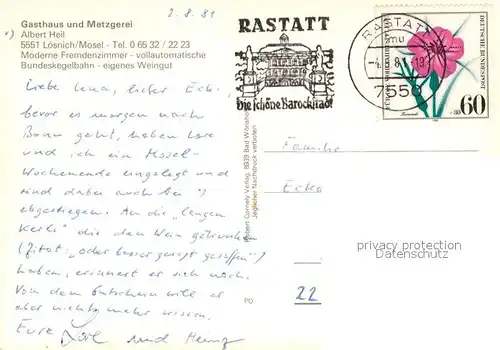 2.8.81
Gasthaus und Metzgerei
*) Albert Heil
5551 Lösnich/Mosel - Tel. 0 65 32 / 22 23
Moderne Fremdenzimmer - vollautomatische
Bundeskegelbahn - eigenes Weingut
Liebe Lena, lieber Ecki,
bevor es morgen nach
Bonn geht, haben Lore
und ich ein Mosel-
Wochenende eingelegt und
sind dabei auch bei *)
abgestiegen. An die "langen
Kerls" die den Wein getrunken
(Zitat: "oder besser gesagt gesoffen")
haben, erinnert er sich noch.
Von dem Gutschein will er
aber nichts mehr wissen.
Eure Lore und Heinz
RASTATT
Die schöne Barockstadt
RASTATT
mu
-4.8.81-19
7550
DEUTSCHE BUNDESPOST
60
+30
Robert Cornely Verlag, 8939 Bad Wörishofen
Jeglicher Nachdruck verboten
PO
Familie
Ecko
22
privacy protection
for AK-Ansichtskarten